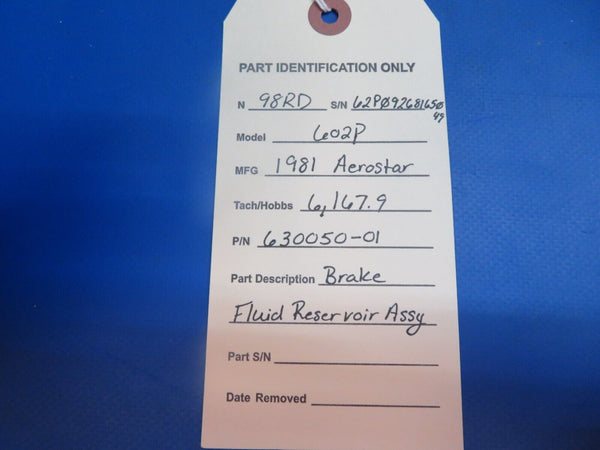 PART IDENTIFICATION ONLY
N 98RD S/N 62P092681650
49
Model 602P
MFG 1981 Aerostar
Tach/Hobbs 6,167.9
P/N 630050-01
Part Description Brake
Fluid Reservoir Assy
Part S/N
Date Removed